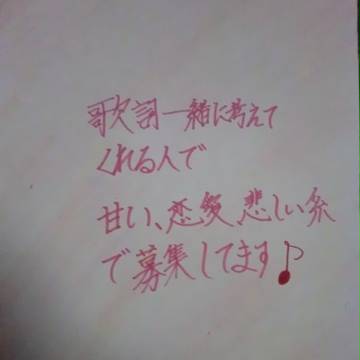 歌詞一緒に考えて
くれる人で
甘い、恋愛、悲しい系
で募集してます♪